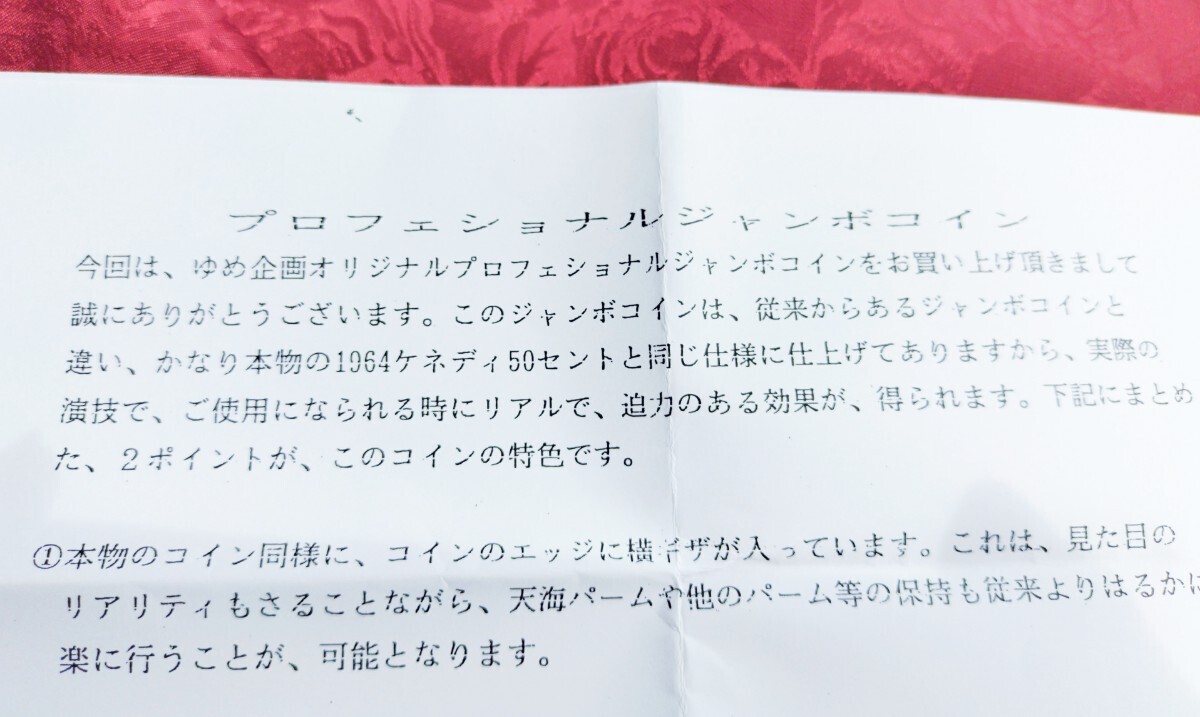 プロフェショナルジャンボコイン
今回は、ゆめ企画オリジナルプロフェショナルジャンボコインをお買い上げ頂きまして
誠にありがとうございます。このジャンボコインは、従来からあるジャンボコインと
違い、かなり本物の1964ケネディ50セントと同じ仕様に仕上げてありますから、実際の
演技で、ご使用になられる時にリアルで、迫力のある効果が、得られます。下記にまとめ
た、２ポイントが、このコインの特色です。
①本物のコイン同様に、コインのエッジに横ギザが入っています。これは、見た目の
リアリティもさることながら、天海パームや他のパーム等の保持も従来よりはるかに
楽に行うことが、可能となります。